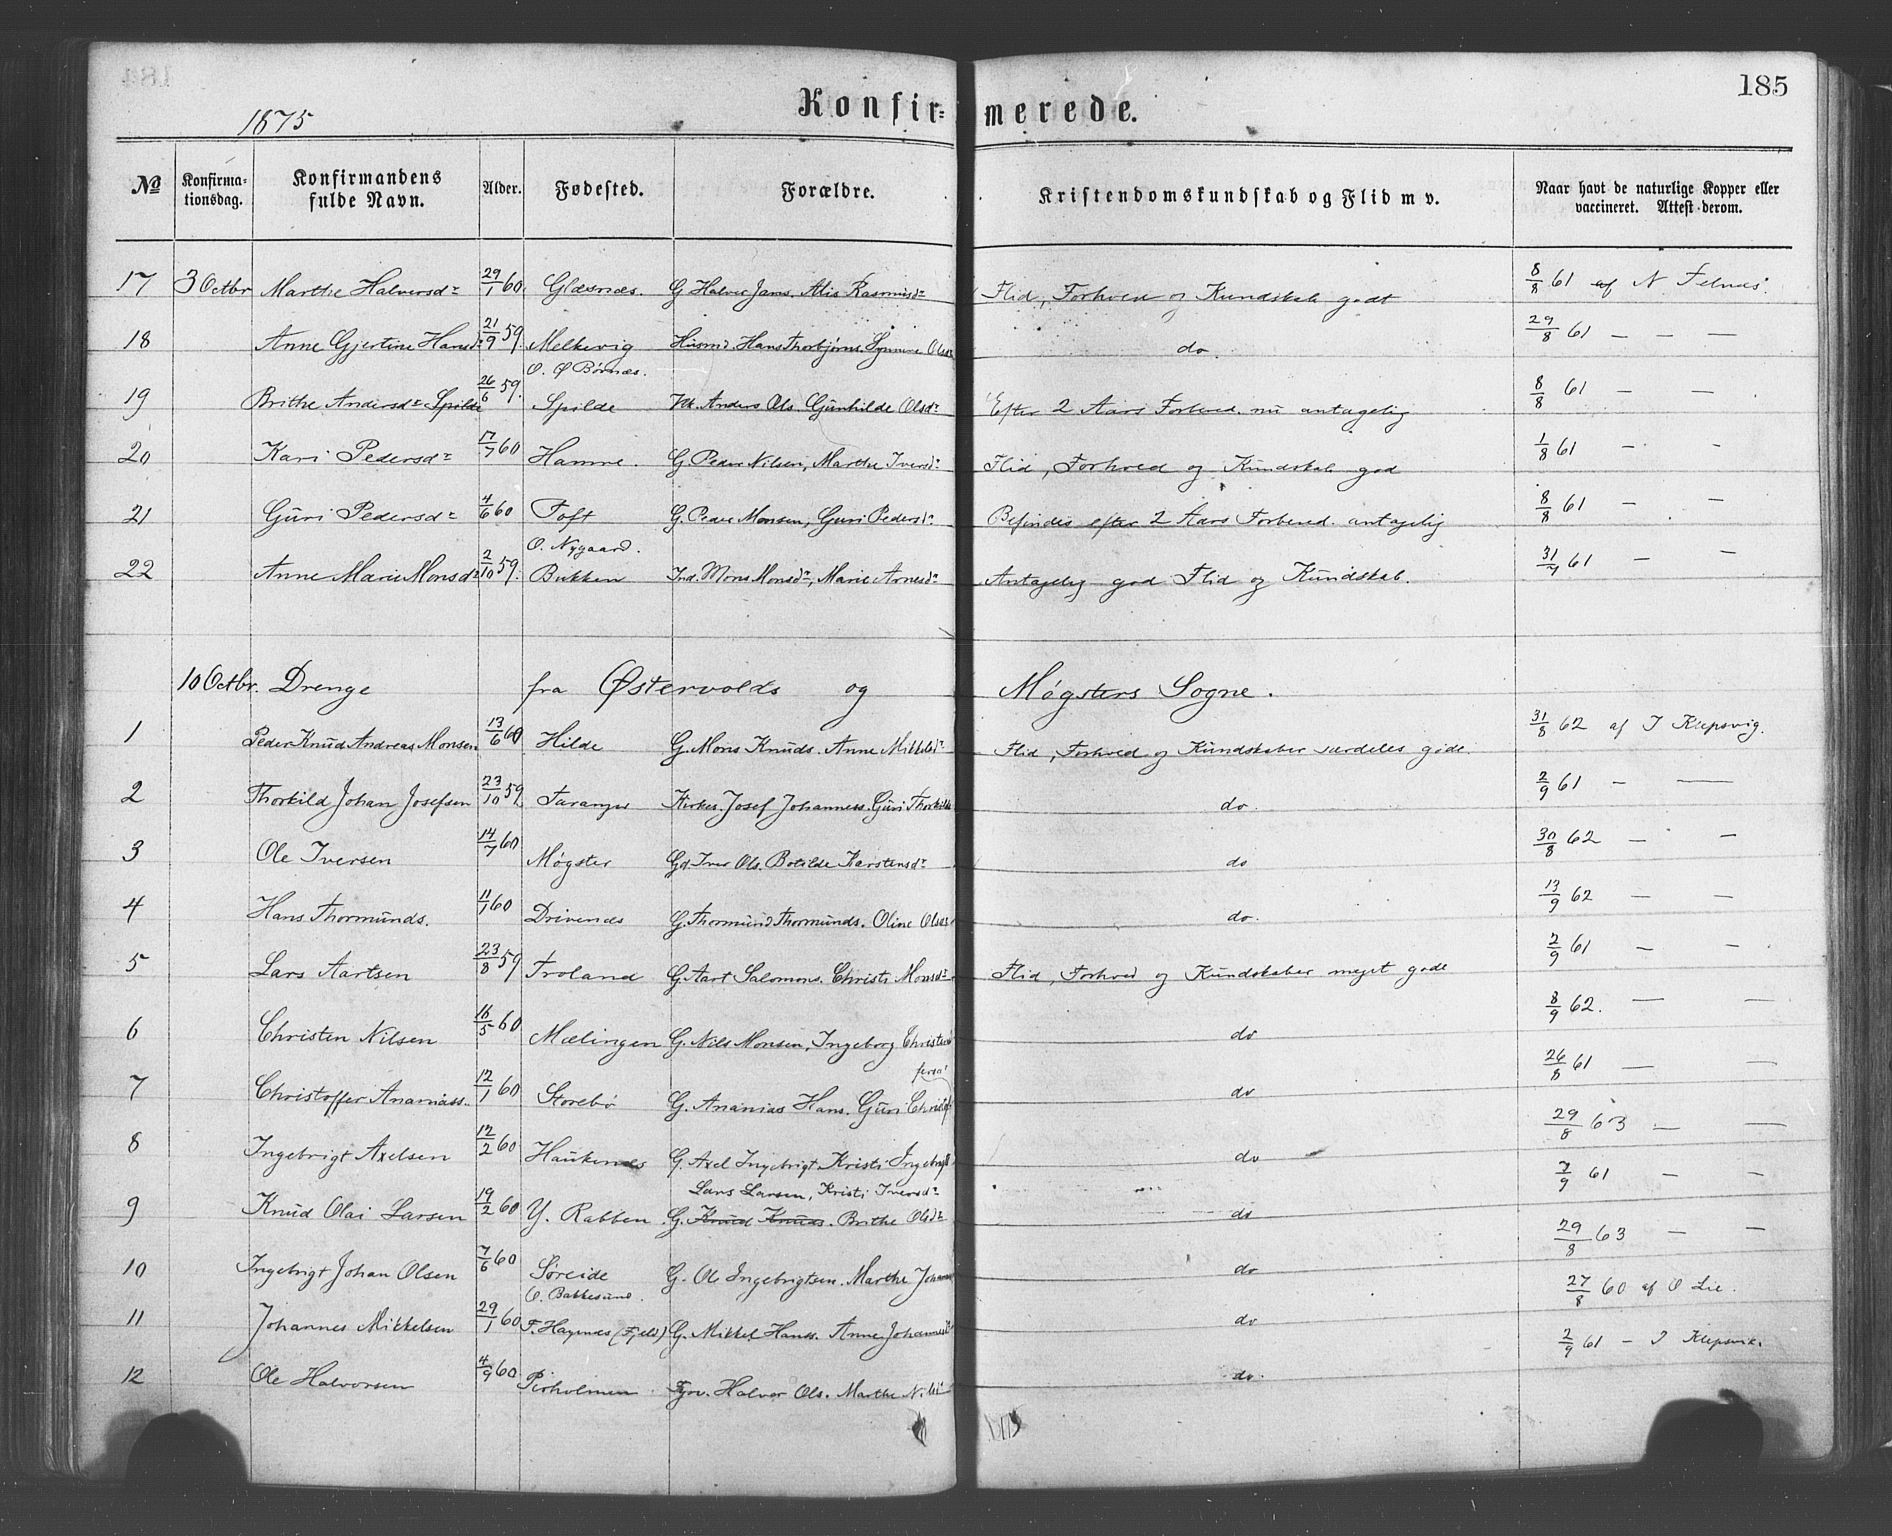 185
1875 Konfirmerede.
№ Konfirmationsdag. Konfirmandens fulde Navn. Alder. Fødested. Forældre. Kristendomskundskab og Flid m v. Naar havt de naturlige Kopper eller vaccineret. Attest derom.
17 3 Octbr Marthe Halversdr 29/1 60 Glæsnæs. G Halver Jans. Alis Rasmusdr Flid, Forhold og Kundskab godt 8/8 61 af N Felnæs.
18 Anne Gjertine Hansdr 21/9 59. Melkevig Husmd Hans Thorbjørns. Synneve Olsdr do. 29/8 61 — — —
O. Ø Børnæs.
19 Brithe Andersdr Spilde 26/6 59. Spilde Anders Ols. Gunhilde Olsdr Efter 2 Aars Forbered. nu antagelig 8/8 61 — —
20 Kari Pedersdr 17/7 60 Hamre. G. Peder Nilsen, Marthe Iversdr Flid, Forhold og Kundskab god 1/8 61 — -
21 Guri Pedersdr 4/6 60 Toft G. Peder Monsen, Guri Pedersdr Befindes efter 2 Aars Forbered. antagelig 8/8 61 — —
O. Nygaard.
22 Anne Marie Monsdr 2/10 59. Bukken Ind. Mons Monsdr, Marie Arnesdr Antagelig god Flid og Kundskab. 31/7 61 — —
10 Octbr. Drenge fra Østervolds og Møgsters Sogne.
1 Peder Knud Andreas Monsen 13/6 60 Hilde G. Mons Knuds. Anne Mikkelsdr Flid, Forhold og Kundskaber særdeles gode. 31/8 62 af I Klepsvig.
2 Thorkild Johan Josefsen 23/10 59 Taranger Kirkes. Josef Johanness. Guri Thorkildsdr do. 2/9 61 — —
3 Ole Iversen 14/7 60 Møgster Gd. Iver Ols. Botilde Karstensdr do 30/8 62 — —
4 Hans Thormunds. 11/1 60 Drivenæs G. Thormund Thormunds. Oline Olsdr do. 13/9 62 — —
5 Lars Aartsen 23/8 59 Troland G. Aart Salomons. Christi Monsdr Flid, Forhold og Kundskaber meget gode 2/9 61 — —
6 Christen Nilsen 16/5 60 Mælingen G. Nils Monsen, Ingeborg do 8/9 62. — —
7 Christoffer Ananiass. 12/1 60 Storebø G. Ananias Hans. Guri do 26/8 61 — —
8 Ingebrigt Axelsen 12/2 60 Haukenæs G. Axel Ingebrigt. Kristi do 29/8 63 — —
Lars Larsen, Kristi Iversdr
9 Knud Olai Larsen 19/2 60 Y. Rabben. G. Knud Knuds. Brithe Olsdr do 7/9 61 — —
10 Ingebrigt Johan Olsen 7/6 60 Søreide G. Ole Ingebrigtsen. Marthe do 29/8 63 — —
O. Bakkesund.
11 Johannes Mikkelsen 29/1 60 F. Hagenæs (Fjeld) G. Mikkel Hanss. Anne Johannesdr do 27/8 60 af O Lie.
12 Ole Halvorsen 4/9 60 Pirholmen Halvor Ols. Marthe Nilsdr do. 2/9 61 — I Klepsvik.